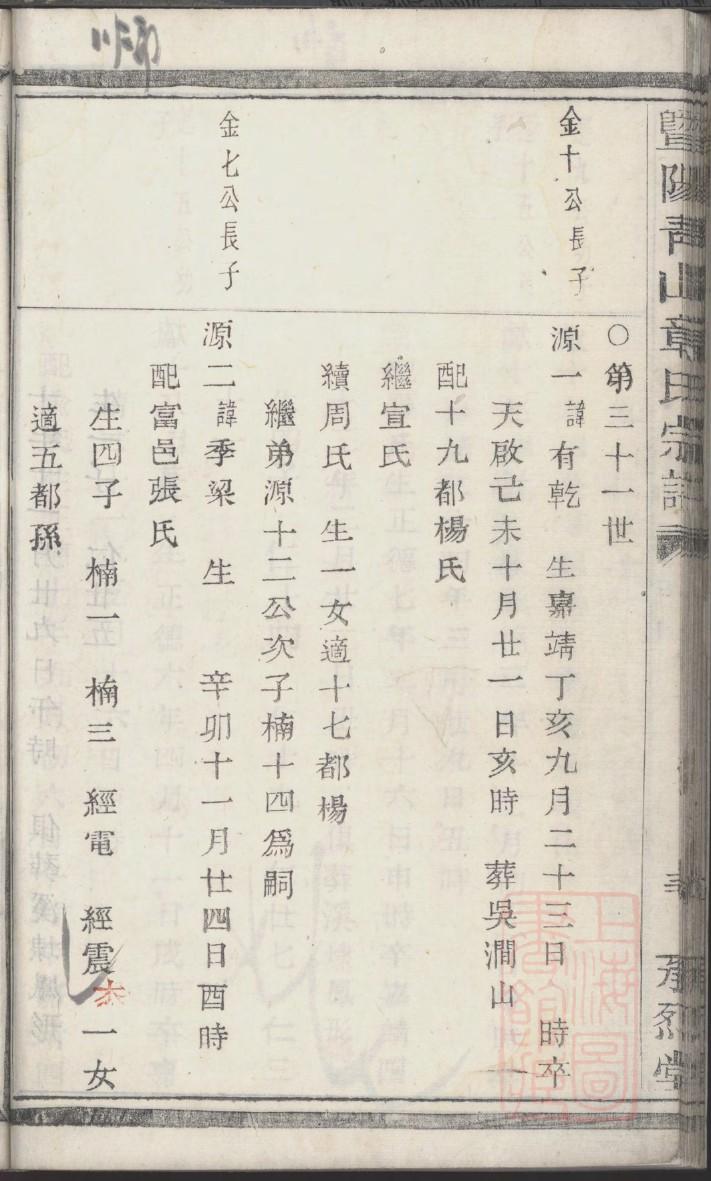 暨陽青山章氏宗譜
承烈堂
○第三十一世
金十公長子
源一諱有乾 生嘉靖丁亥九月二十三日 時卒
天啟己未十月廿一日亥時 葬吳澗山
配十九都楊氏
繼宣氏
續周氏 生一女適十七都楊
繼弟源十二公次子楠十四為嗣
金七公長子
源二諱季梁 生 辛卯十一月廿四日酉時
配富邑張氏
生四子 楠一 楠三 經電 經震 一女
適五都孫
上海圖書館藏